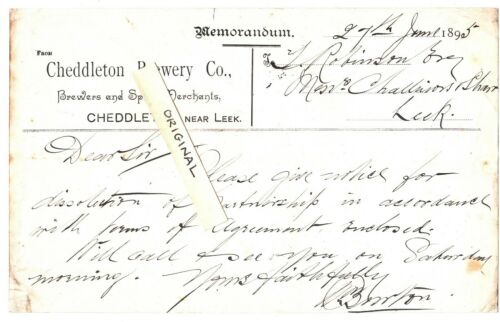 Memorandum. 27th June 1895
FROM
Cheddleton Brewery Co.,
Brewers and Merchants,
CHEDDLET NEAR LEEK.
ORIGINAL
Robinson Esq
Messrs Challinors & Shaw
Leek.
Dear Sir
Please give notice for
dissolution of Partnership in accordance
with terms of Agreement enclosed.
Will call & see you on Saturday
morning. Yours faithfully
Burton.